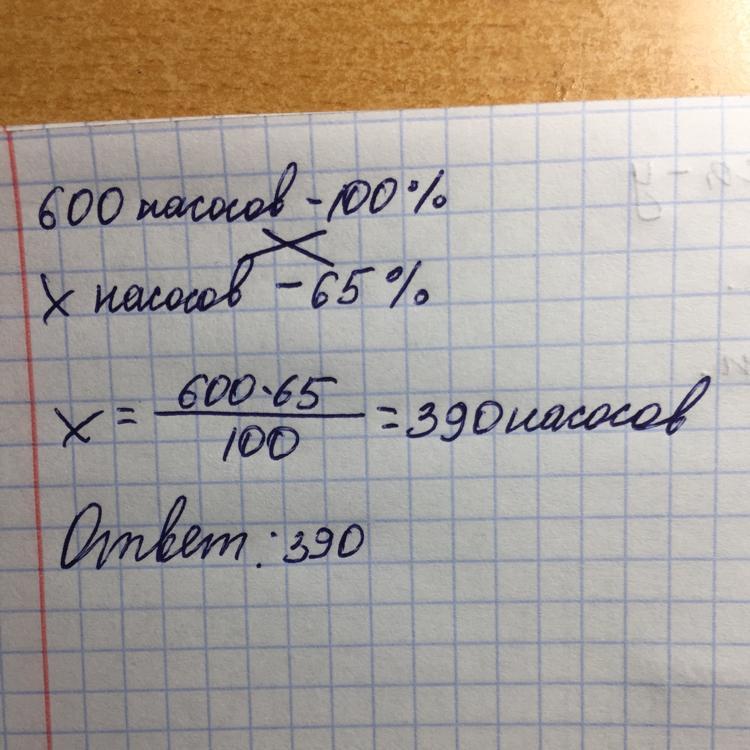 600 насосов - 100%
x насосов - 65%
x = 600·65 / 100 = 390 насосов
Ответ: 390